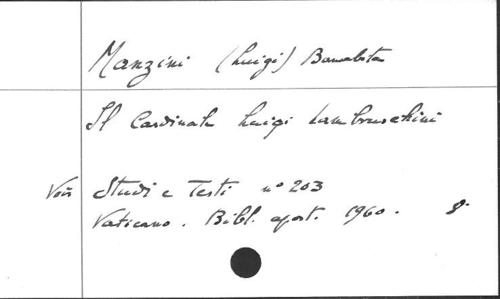 Manzini (Luigi) Barnabita
Il Cardinale Luigi Lambruschini
Voir Studi e Testi n° 203
Vaticano. Bibl. apost. 1960. 8°